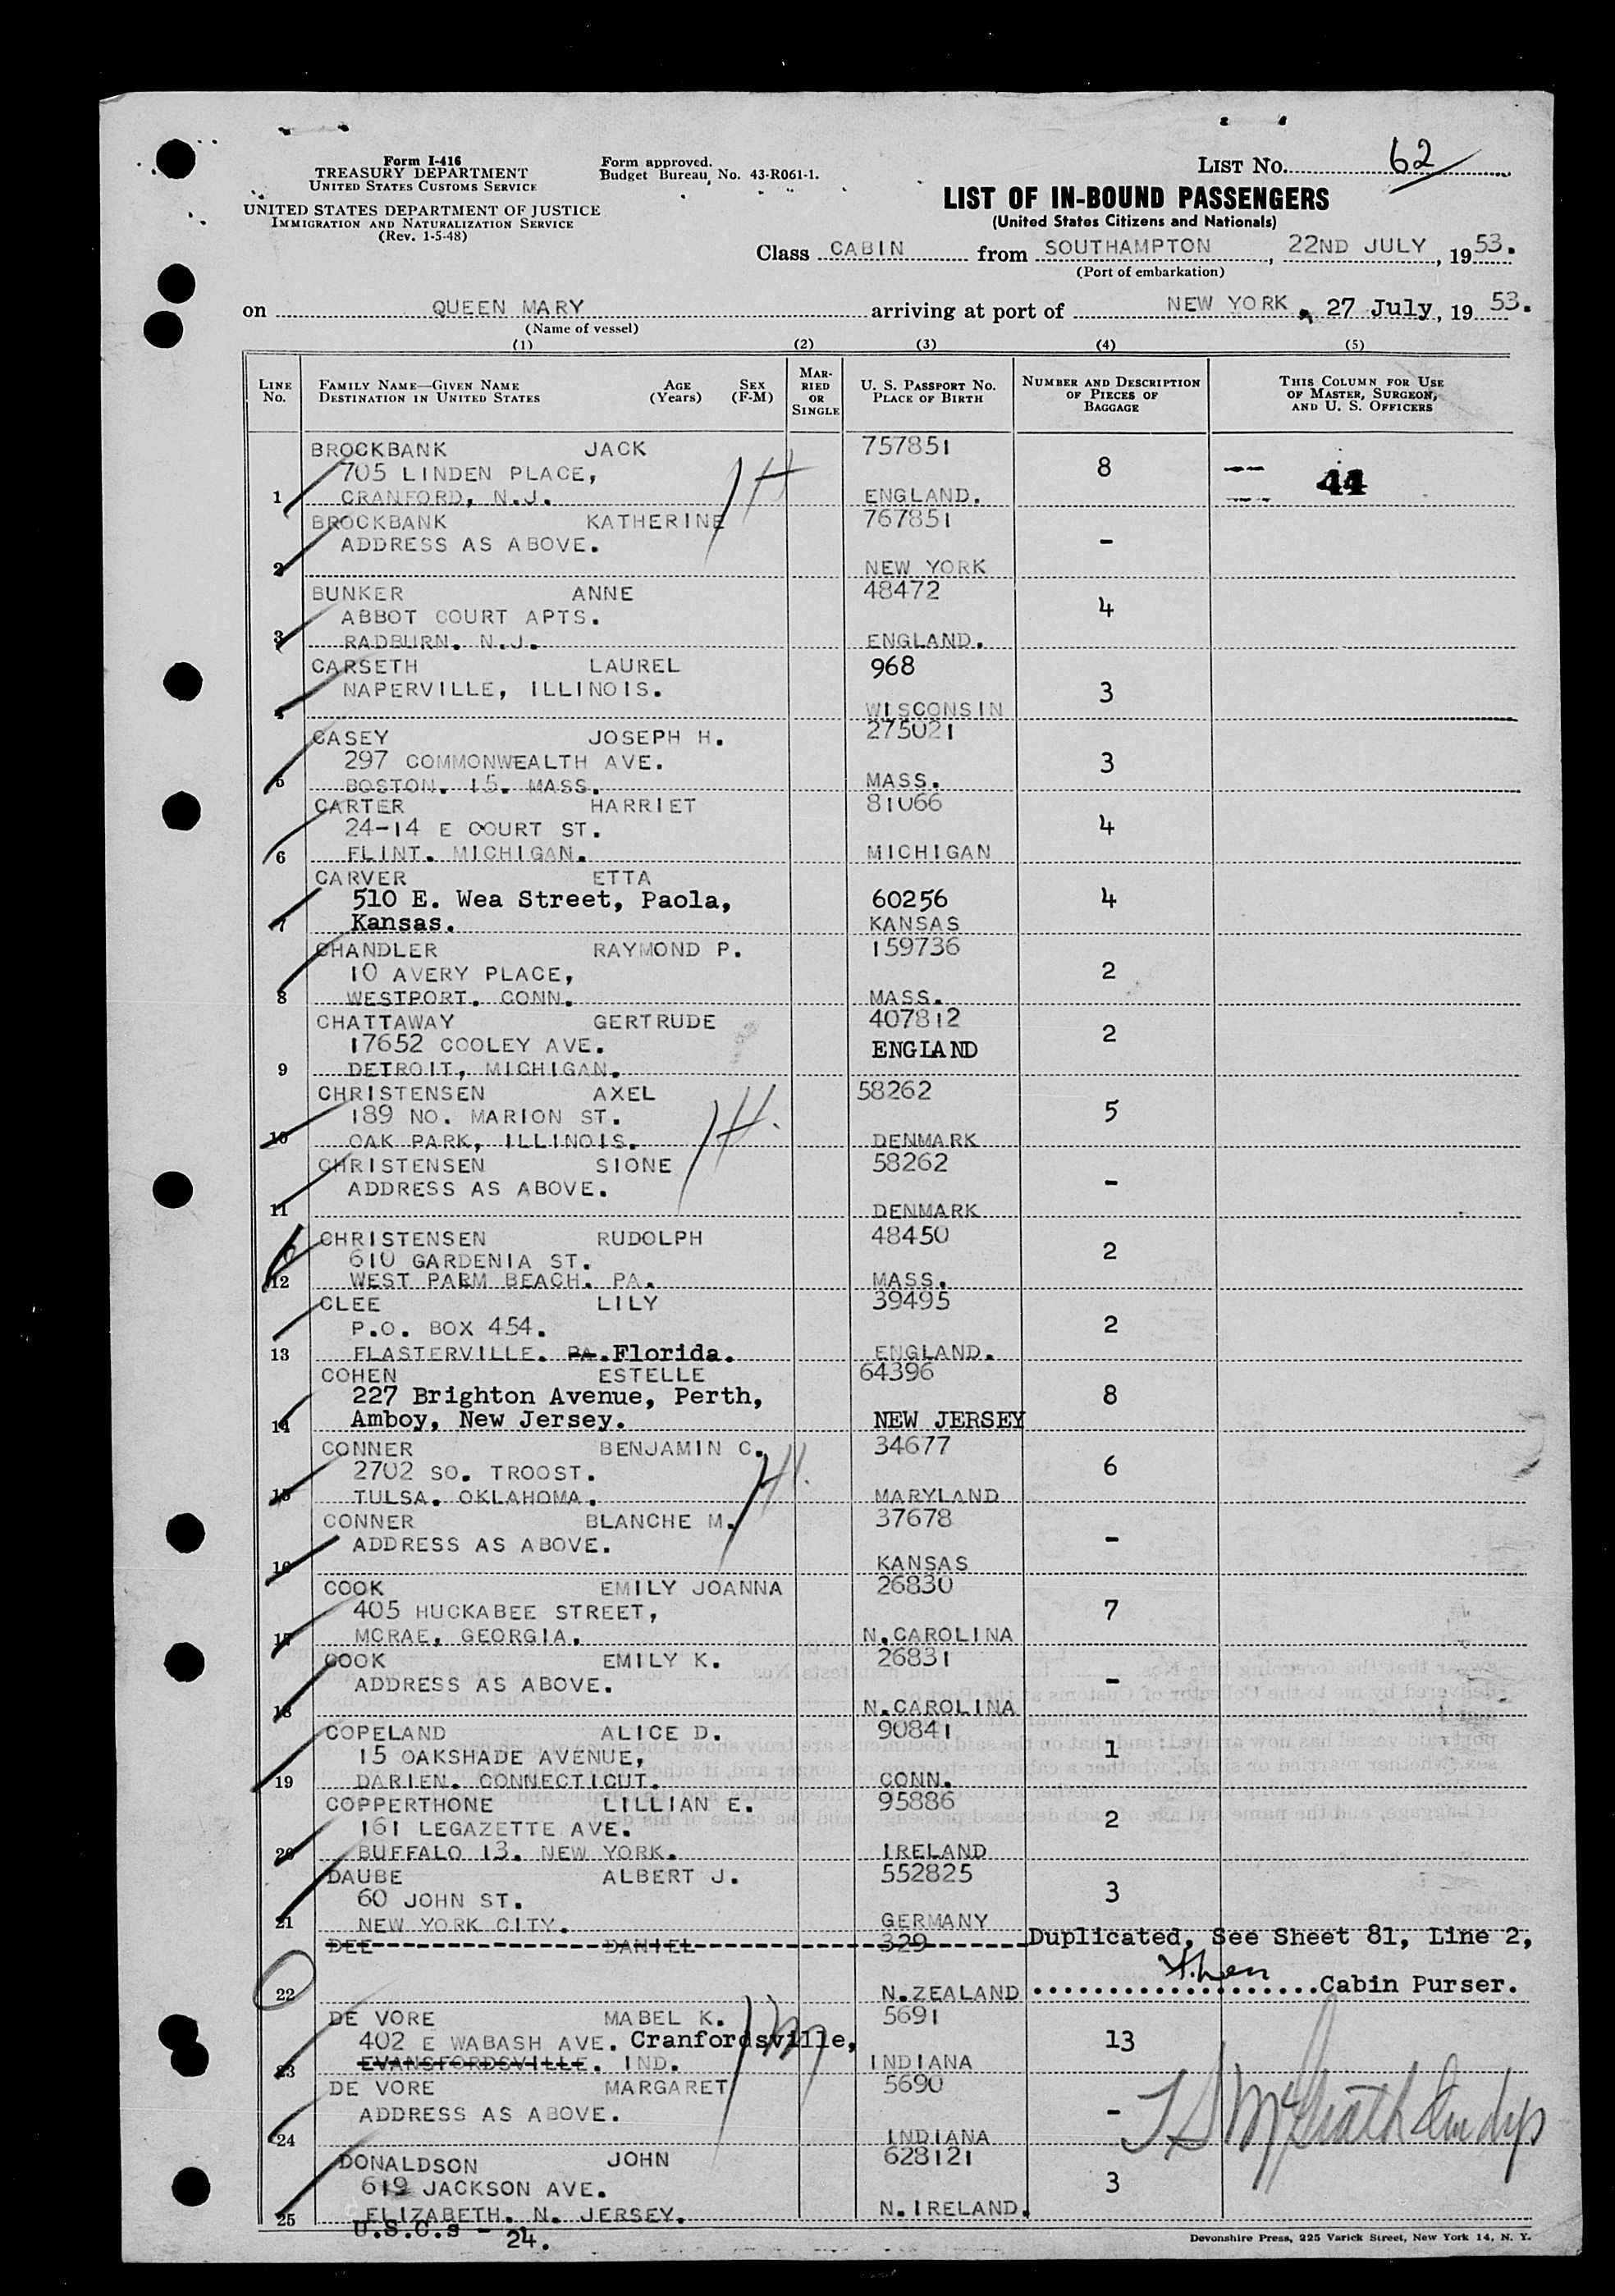 Form I-416
TREASURY DEPARTMENT
UNITED STATES CUSTOMS SERVICE
UNITED STATES DEPARTMENT OF JUSTICE
IMMIGRATION AND NATURALIZATION SERVICE
(Rev. 1-5-48)
Form approved.
Budget Bureau No. 43-R061-1.
LIST NO. 62
LIST OF IN-BOUND PASSENGERS
(United States Citizens and Nationals)
Class CABIN from SOUTHAMPTON, 22ND JULY, 1953.
(Port of embarkation)
on QUEEN MARY arriving at port of NEW YORK, 27 July, 1953.
(Name of vessel)
(1) (2) (3) (4) (5)
LINE NO. FAMILY NAME—GIVEN NAME DESTINATION IN UNITED STATES AGE (YEARS) SEX (F-M) MARRIED OR SINGLE U. S. PASSPORT NO. PLACE OF BIRTH NUMBER AND DESCRIPTION OF PIECES OF BAGGAGE THIS COLUMN FOR USE OF MASTER, SURGEON, AND U. S. OFFICERS
BROCKBANK JACK 757851
705 LINDEN PLACE, 8 44
1 CRANFORD, N.J. ENGLAND.
BROCKBANK KATHERINE 767851
ADDRESS AS ABOVE. -
2 NEW YORK
BUNKER ANNE 48472
ABBOT COURT APTS. 4
3 RADBURN. N.J. ENGLAND.
CARSETH LAUREL 968
NAPERVILLE, ILLINOIS. 3
4 WISCONSIN
CASEY JOSEPH H. 275021
297 COMMONWEALTH AVE. 3
5 BOSTON. 15. MASS. MASS.
CARTER HARRIET 81066
24-14 E COURT ST. 4
6 FLINT. MICHIGAN. MICHIGAN
CARVER ETTA
510 E. Wea Street, Paola, 60256 4
7 Kansas. KANSAS
CHANDLER RAYMOND P. 159736
10 AVERY PLACE, 2
8 WESTPORT. CONN. MASS.
CHATTAWAY GERTRUDE 407812
17652 COOLEY AVE. ENGLAND 2
9 DETROIT, MICHIGAN.
CHRISTENSEN AXEL 58262
189 NO. MARION ST. 5
10 OAK PARK, ILLINOIS. DENMARK
CHRISTENSEN SIONE 58262
ADDRESS AS ABOVE. -
11 DENMARK
CHRISTENSEN RUDOLPH 48450
610 GARDENIA ST. 2
12 WEST PARM BEACH. PA. MASS.
CLEE LILY 39495
P.O. BOX 454. 2
13 FLASTERVILLE. PA. Florida. ENGLAND.
COHEN ESTELLE 64396
227 Brighton Avenue, Perth, 8
14 Amboy, New Jersey. NEW JERSEY
CONNER BENJAMIN C. 34677
2702 SO. TROOST. 6
15 TULSA. OKLAHOMA. MARYLAND
CONNER BLANCHE M. 37678
ADDRESS AS ABOVE. -
16 KANSAS
COOK EMILY JOANNA 26830
405 HUCKABEE STREET, 7
17 MCRAE, GEORGIA. N.CAROLINA
COOK EMILY K. 26831
ADDRESS AS ABOVE. -
18 N.CAROLINA
COPELAND ALICE D. 90841
15 OAKSHADE AVENUE, 1
19 DARIEN. CONNECTICUT. CONN.
COPPERTHONE LILLIAN E. 95886
161 LEGAZETTE AVE. 2
20 BUFFALO 13. NEW YORK. IRELAND
DAUBE ALBERT J. 552825
60 JOHN ST. 3
21 NEW YORK CITY. GERMANY
DEE DANIEL 329 Duplicated, See Sheet 81, Line 2,
22 N.ZEALAND Cabin Purser.
DE VORE MABEL K. 5691
402 E WABASH AVE. Cranfordsville, 13
23 EVANSFORDSVILLE. IND. INDIANA
DE VORE MARGARET 5690
ADDRESS AS ABOVE. -
24 INDIANA
DONALDSON JOHN 628121
619 JACKSON AVE. 3
25 ELIZABETH. N. JERSEY. N. IRELAND.
U.S.C.s - 24.
Devonshire Press, 225 Varick Street, New York 14, N. Y.